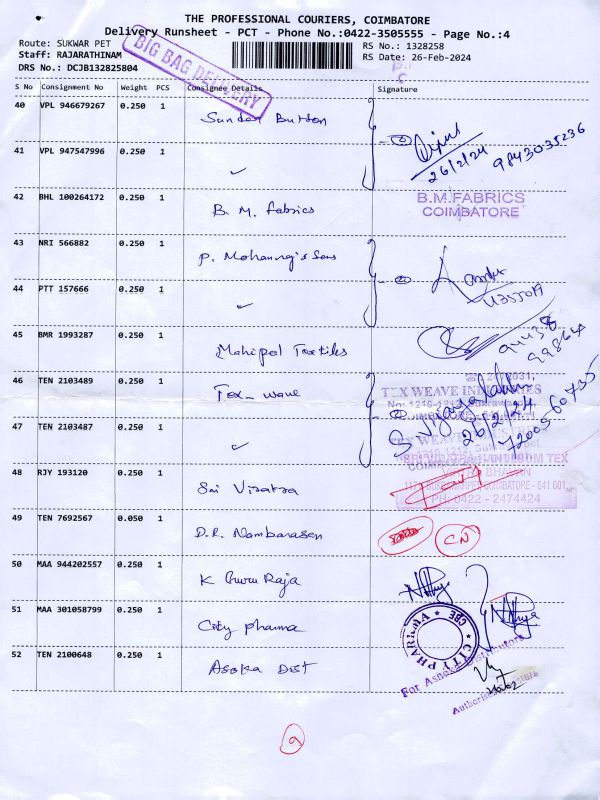 THE PROFESSIONAL COURIERS, COIMBATORE
Delivery Runsheet - PCT - Phone No.:0422-3505555 - Page No.:4
Route: SUKWAR PET
RS No.: 1328258
Staff: RAJARATHINAM
RS Date: 26-Feb-2024
DRS No.: DCJB132825804
BIG BAG DELIVERY
S No Consignment No Weight PCS Consignee Details Signature
40 VPL 946679267 0.250 1 Sundar Button
26/2/24 9843035236
41 VPL 947547996 0.250 1 ✓
42 BHL 100264172 0.250 1 B. M. Fabrics
B.M.FABRICS
COIMBATORE
43 NRI 566882 0.250 1 P. Mohanraj's Sons
44 PTT 157666 0.250 1 ✓
45 BMR 1993287 0.250 1 Mahipal Textiles
46 TEN 2103489 0.250 1 Tex-wave
TEX WEAVE INDUSTRIES
S Vijayalakshmi
26/2/24
7200560735
47 TEN 2103487 0.250 1 ✓
TEX WEAVE
48 RJY 193120 0.250 1 Sri Visatra
HANDLOOM TEX
COIMBATORE - 641 001.
PH: 0422 - 2474424
49 TEN 7692567 0.050 1 D.R. Nambarasen
CN
50 MAA 944202557 0.250 1 K Guru Raja
51 MAA 301058799 0.250 1 City pharma
CITY PHARMA CBE
52 TEN 2100648 0.250 1 Asoka Dist
For Ashoka Distributors
9